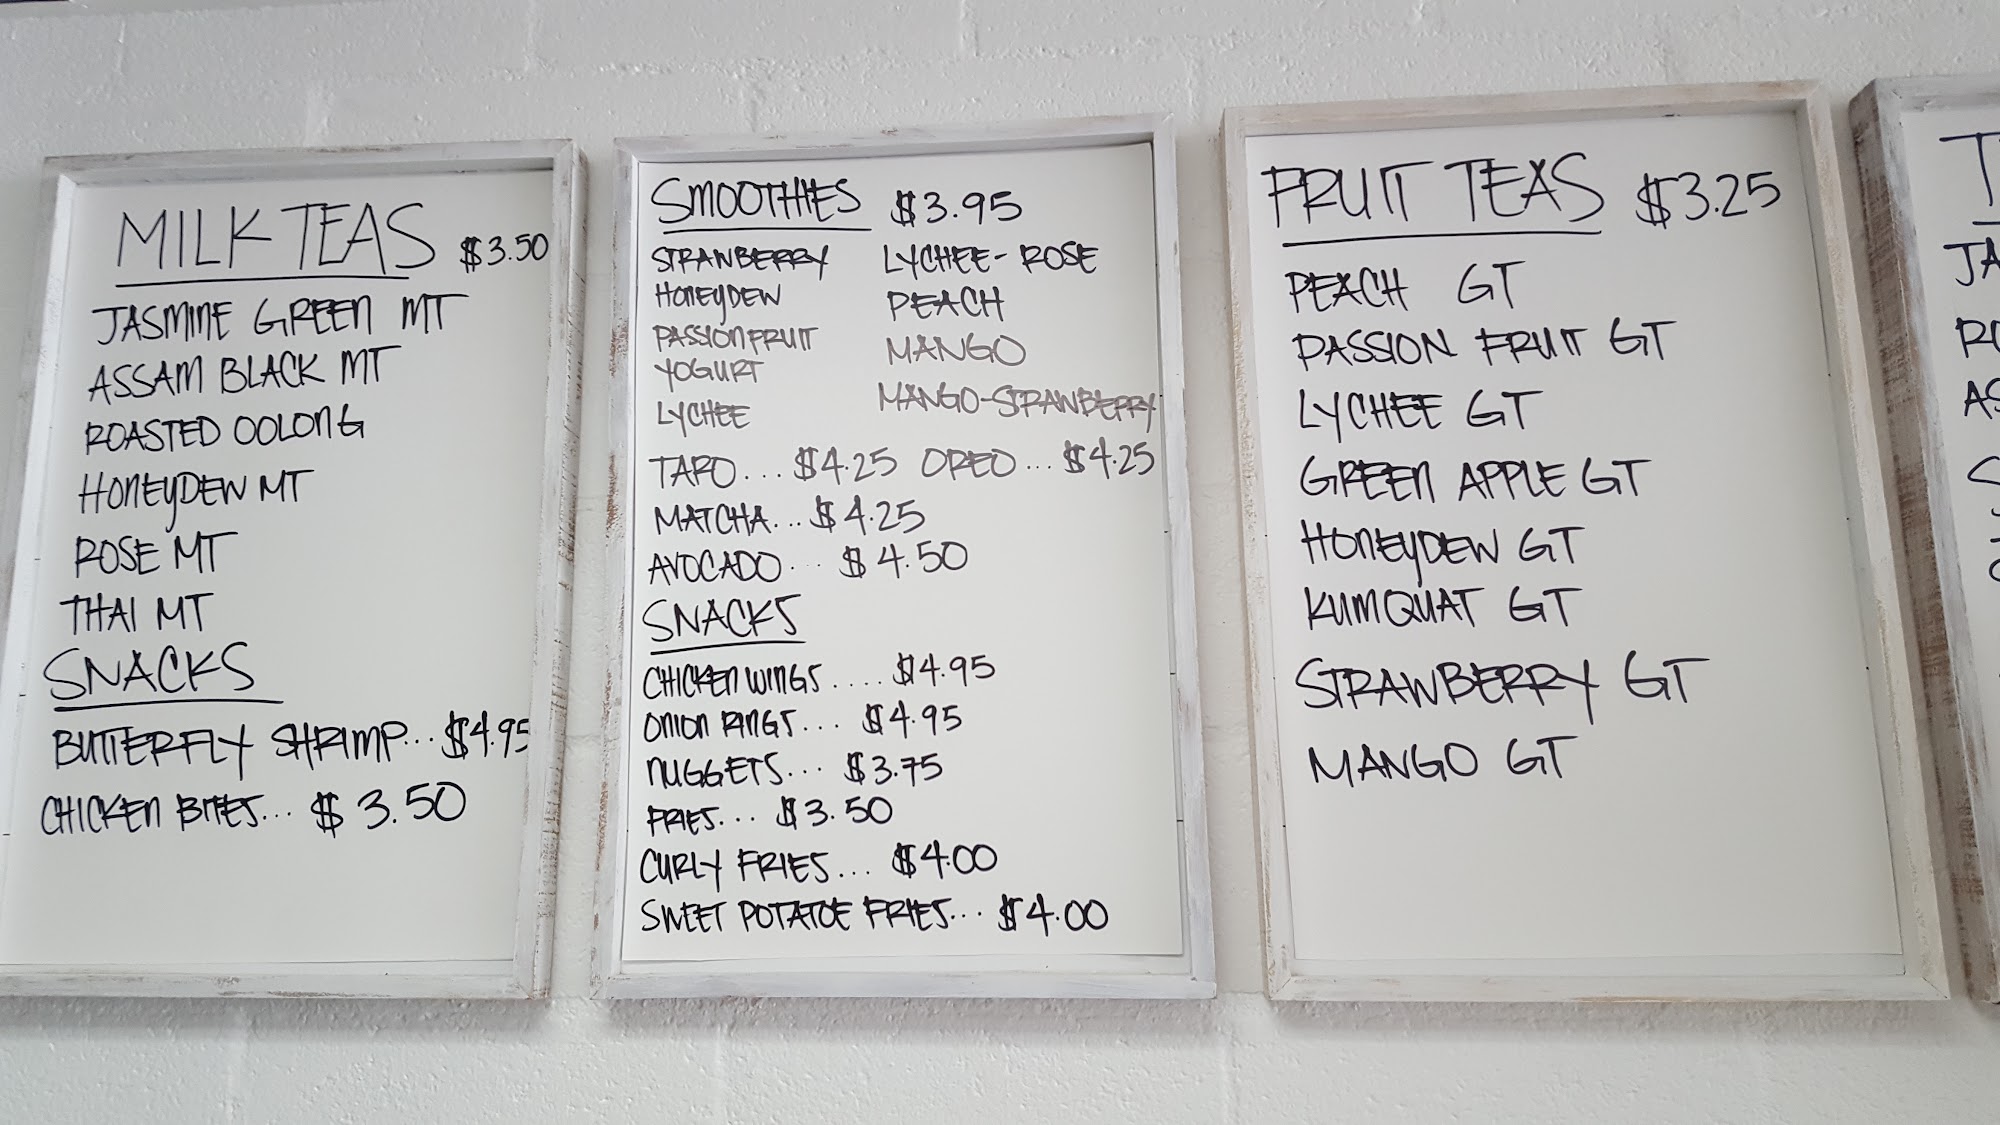 MILK TEAS $3.50
JASMINE GREEN MT
ASSAM BLACK MT
ROASTED OOLONG
HONEYDEW MT
ROSE MT
THAI MT
SNACKS
BUTTERFLY SHRIMP... $4.95
CHICKEN BITES... $3.50
SMOOTHIES $3.95
STRAWBERRY LYCHEE-ROSE
HONEYDEW PEACH
PASSIONFRUIT MANGO
YOGURT
LYCHEE MANGO-STRAWBERRY
TARO... $4.25 OREO... $4.25
MATCHA... $4.25
AVOCADO... $4.50
SNACKS
CHICKEN WINGS.... $4.95
ONION RINGS... $4.95
NUGGETS... $3.75
FRIES... $3.50
CURLY FRIES... $4.00
SWEET POTATOE FRIES... $4.00
FRUIT TEAS $3.25
PEACH GT
PASSION FRUIT GT
LYCHEE GT
GREEN APPLE GT
HONEYDEW GT
KUMQUAT GT
STRAWBERRY GT
MANGO GT